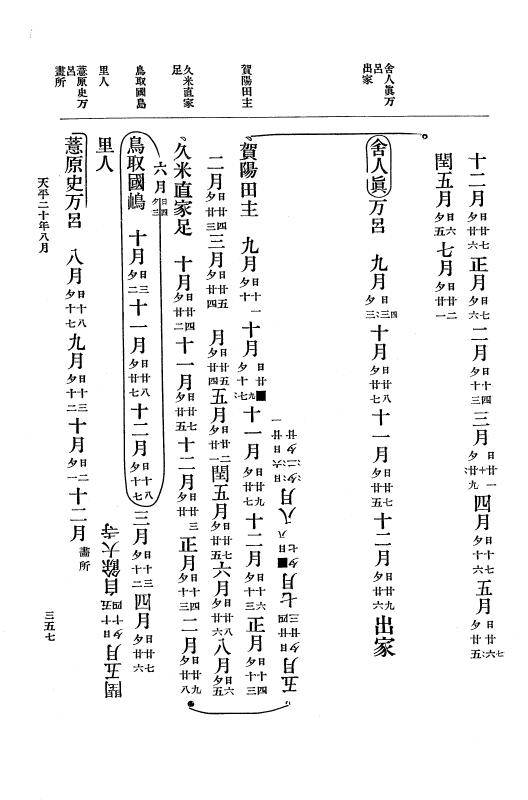 舍人眞万呂出家
賀陽田主
久米直家足
鳥取國嶋
里人
薏原史万呂畫所
十二月日廿七夕廿六正月日七夕六二月日十四夕十三三月四月日十七夕十六五月
閏五月日六夕五七月日廿二夕廿一
舍人眞万呂 九月十月日廿八夕廿七十一月日廿七夕廿五十二月日廿九夕廿六出家
五月日廿三夕廿四七月八月
賀陽田主 九月日十一夕十十月十一月日廿九夕廿七十二月日十六夕十三正月日十四夕十三
二月日廿四夕廿三三月日廿五夕廿四 月日廿五夕廿四五月日廿二夕廿一閏五月日廿七夕廿五六月日廿八夕廿六八月日六夕五
久米直家足 十月日廿四夕廿二十一月日廿七夕廿五十二月日廿三夕廿正月日十四夕十三二月日廿九夕廿八
六月日四夕三
鳥取國嶋 十月日三夕二十一月日廿八夕廿七十二月日十八夕十七三月日十三夕十二四月日廿七夕廿六
里人
閏五月日十五夕十四自餘大寺
薏原史万呂 八月日十八夕十七九月日十三夕十二十月日二夕一十二月畫所
天平二十年八月
三五七